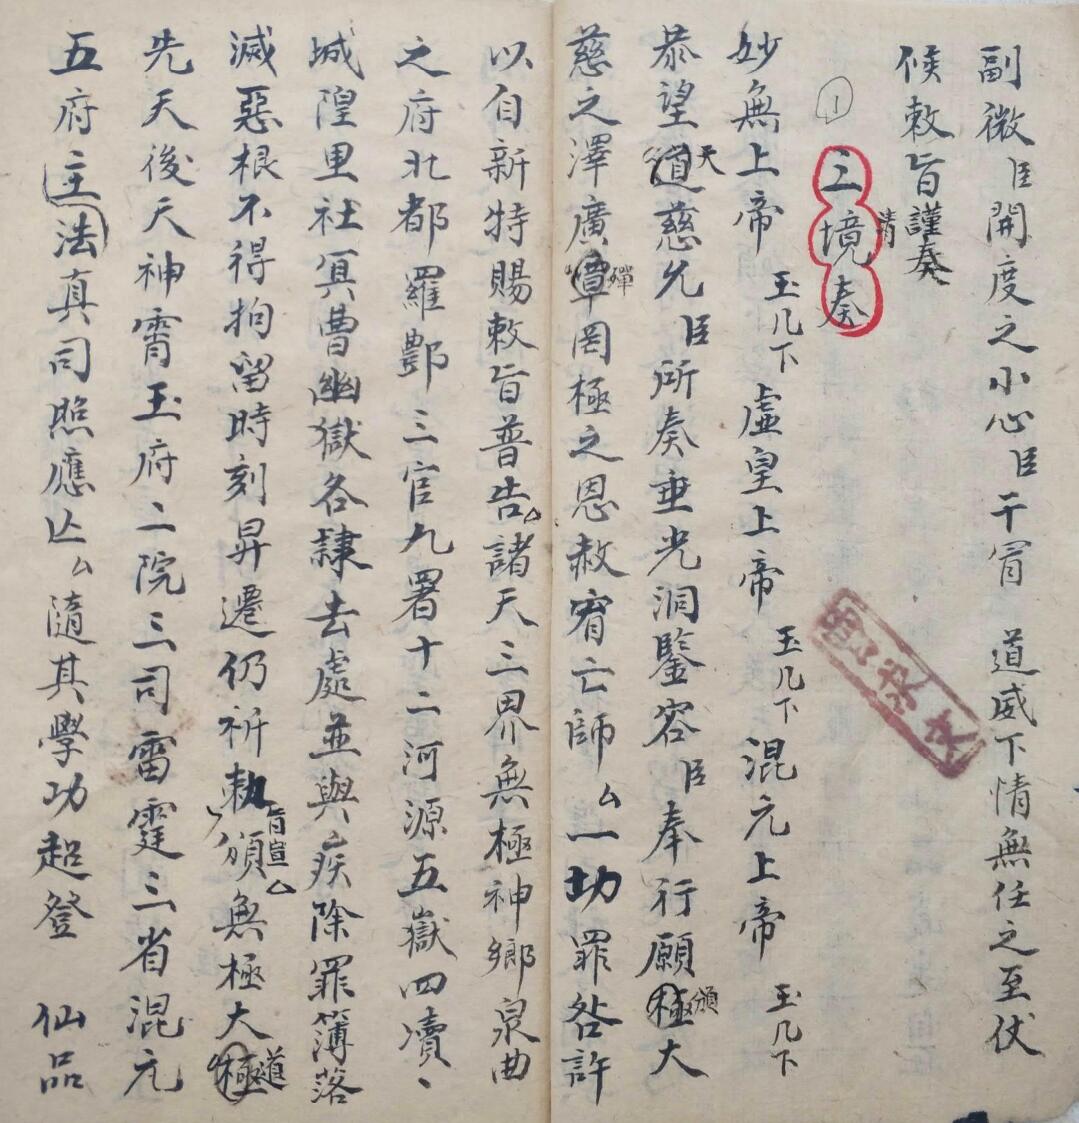 副微臣開度之小心臣干冒 道威下情無任之至伏
候敕旨謹奏
清
①
三境奏
妙無上帝 玉几下 虛皇上帝 玉几下 混元上帝 玉几下
恭望道慈允臣所奏垂光洞鑒容臣奉行願極大
天
頒
慈之澤廣覃罔極之恩赦宥亡師厶一切罪咎許
殫
以自新特賜敕旨普告厶諸天三界無極神鄉泉曲
之府北都羅酆三官九署十二河源五嶽四瀆、
城隍里社冥曹幽獄各隸去處並與疾除罪簿落
滅惡根不得拘留時刻昇遷仍祈勅頒無極大極
旨宣厶
道
先天後天神霄玉府二院三司雷霆三省混元
五府主法真司照應亡厶隨其學功超登 仙品